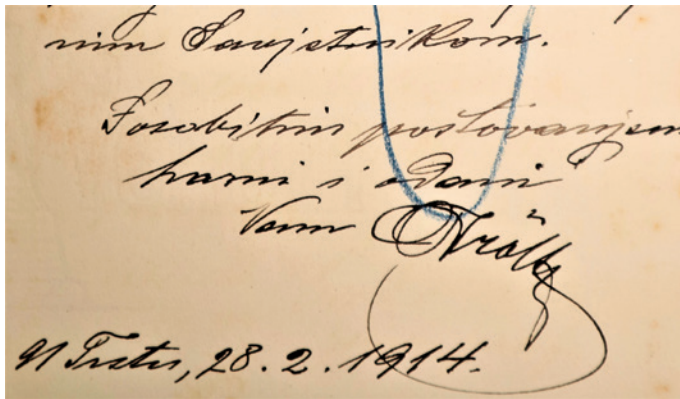 nim Savjetnikom.
S osobitim poštovanjem
harni i odani
Vam
U Trstu, 28. 2. 1914.